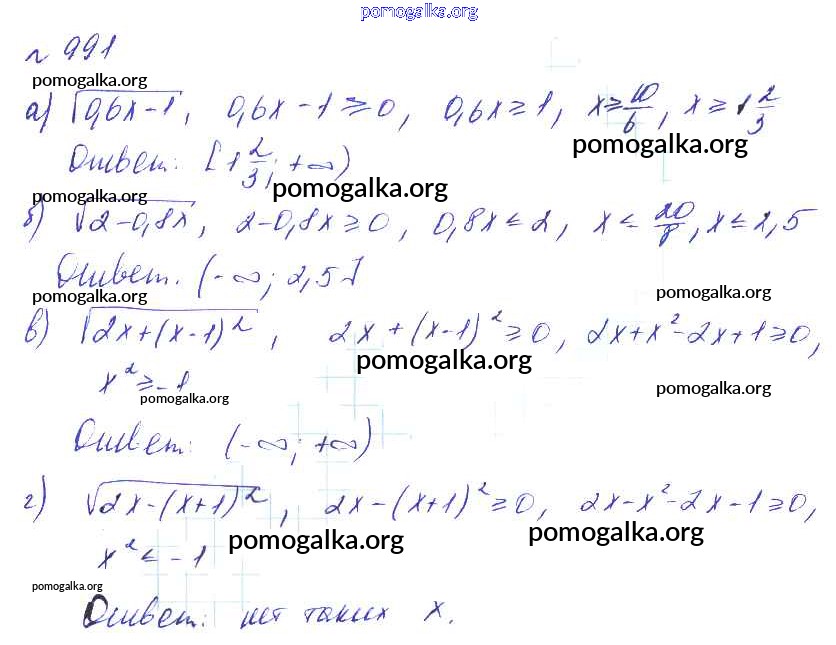 pomogalka.org
№ 991
pomogalka.org
а) √(0,6x-1), 0,6x-1≥0, 0,6x≥1, x≥10/6, x≥1 2/3
pomogalka.org
Ответ: [1 2/3; +∞)
pomogalka.org pomogalka.org
б) √(2-0,8x), 2-0,8x≥0, 0,8x≤2, x≤20/8, x≤2,5
Ответ. (-∞; 2,5]
pomogalka.org pomogalka.org
в) √(2x+(x-1)²), 2x+(x-1)²≥0, 2x+x²-2x+1≥0,
pomogalka.org
x²≥-1
pomogalka.org pomogalka.org
Ответ: (-∞; +∞)
г) √(2x-(x+1)²), 2x-(x+1)²≥0, 2x-x²-2x-1≥0,
pomogalka.org pomogalka.org
x²≤-1
pomogalka.org
Ответ: нет таких x.